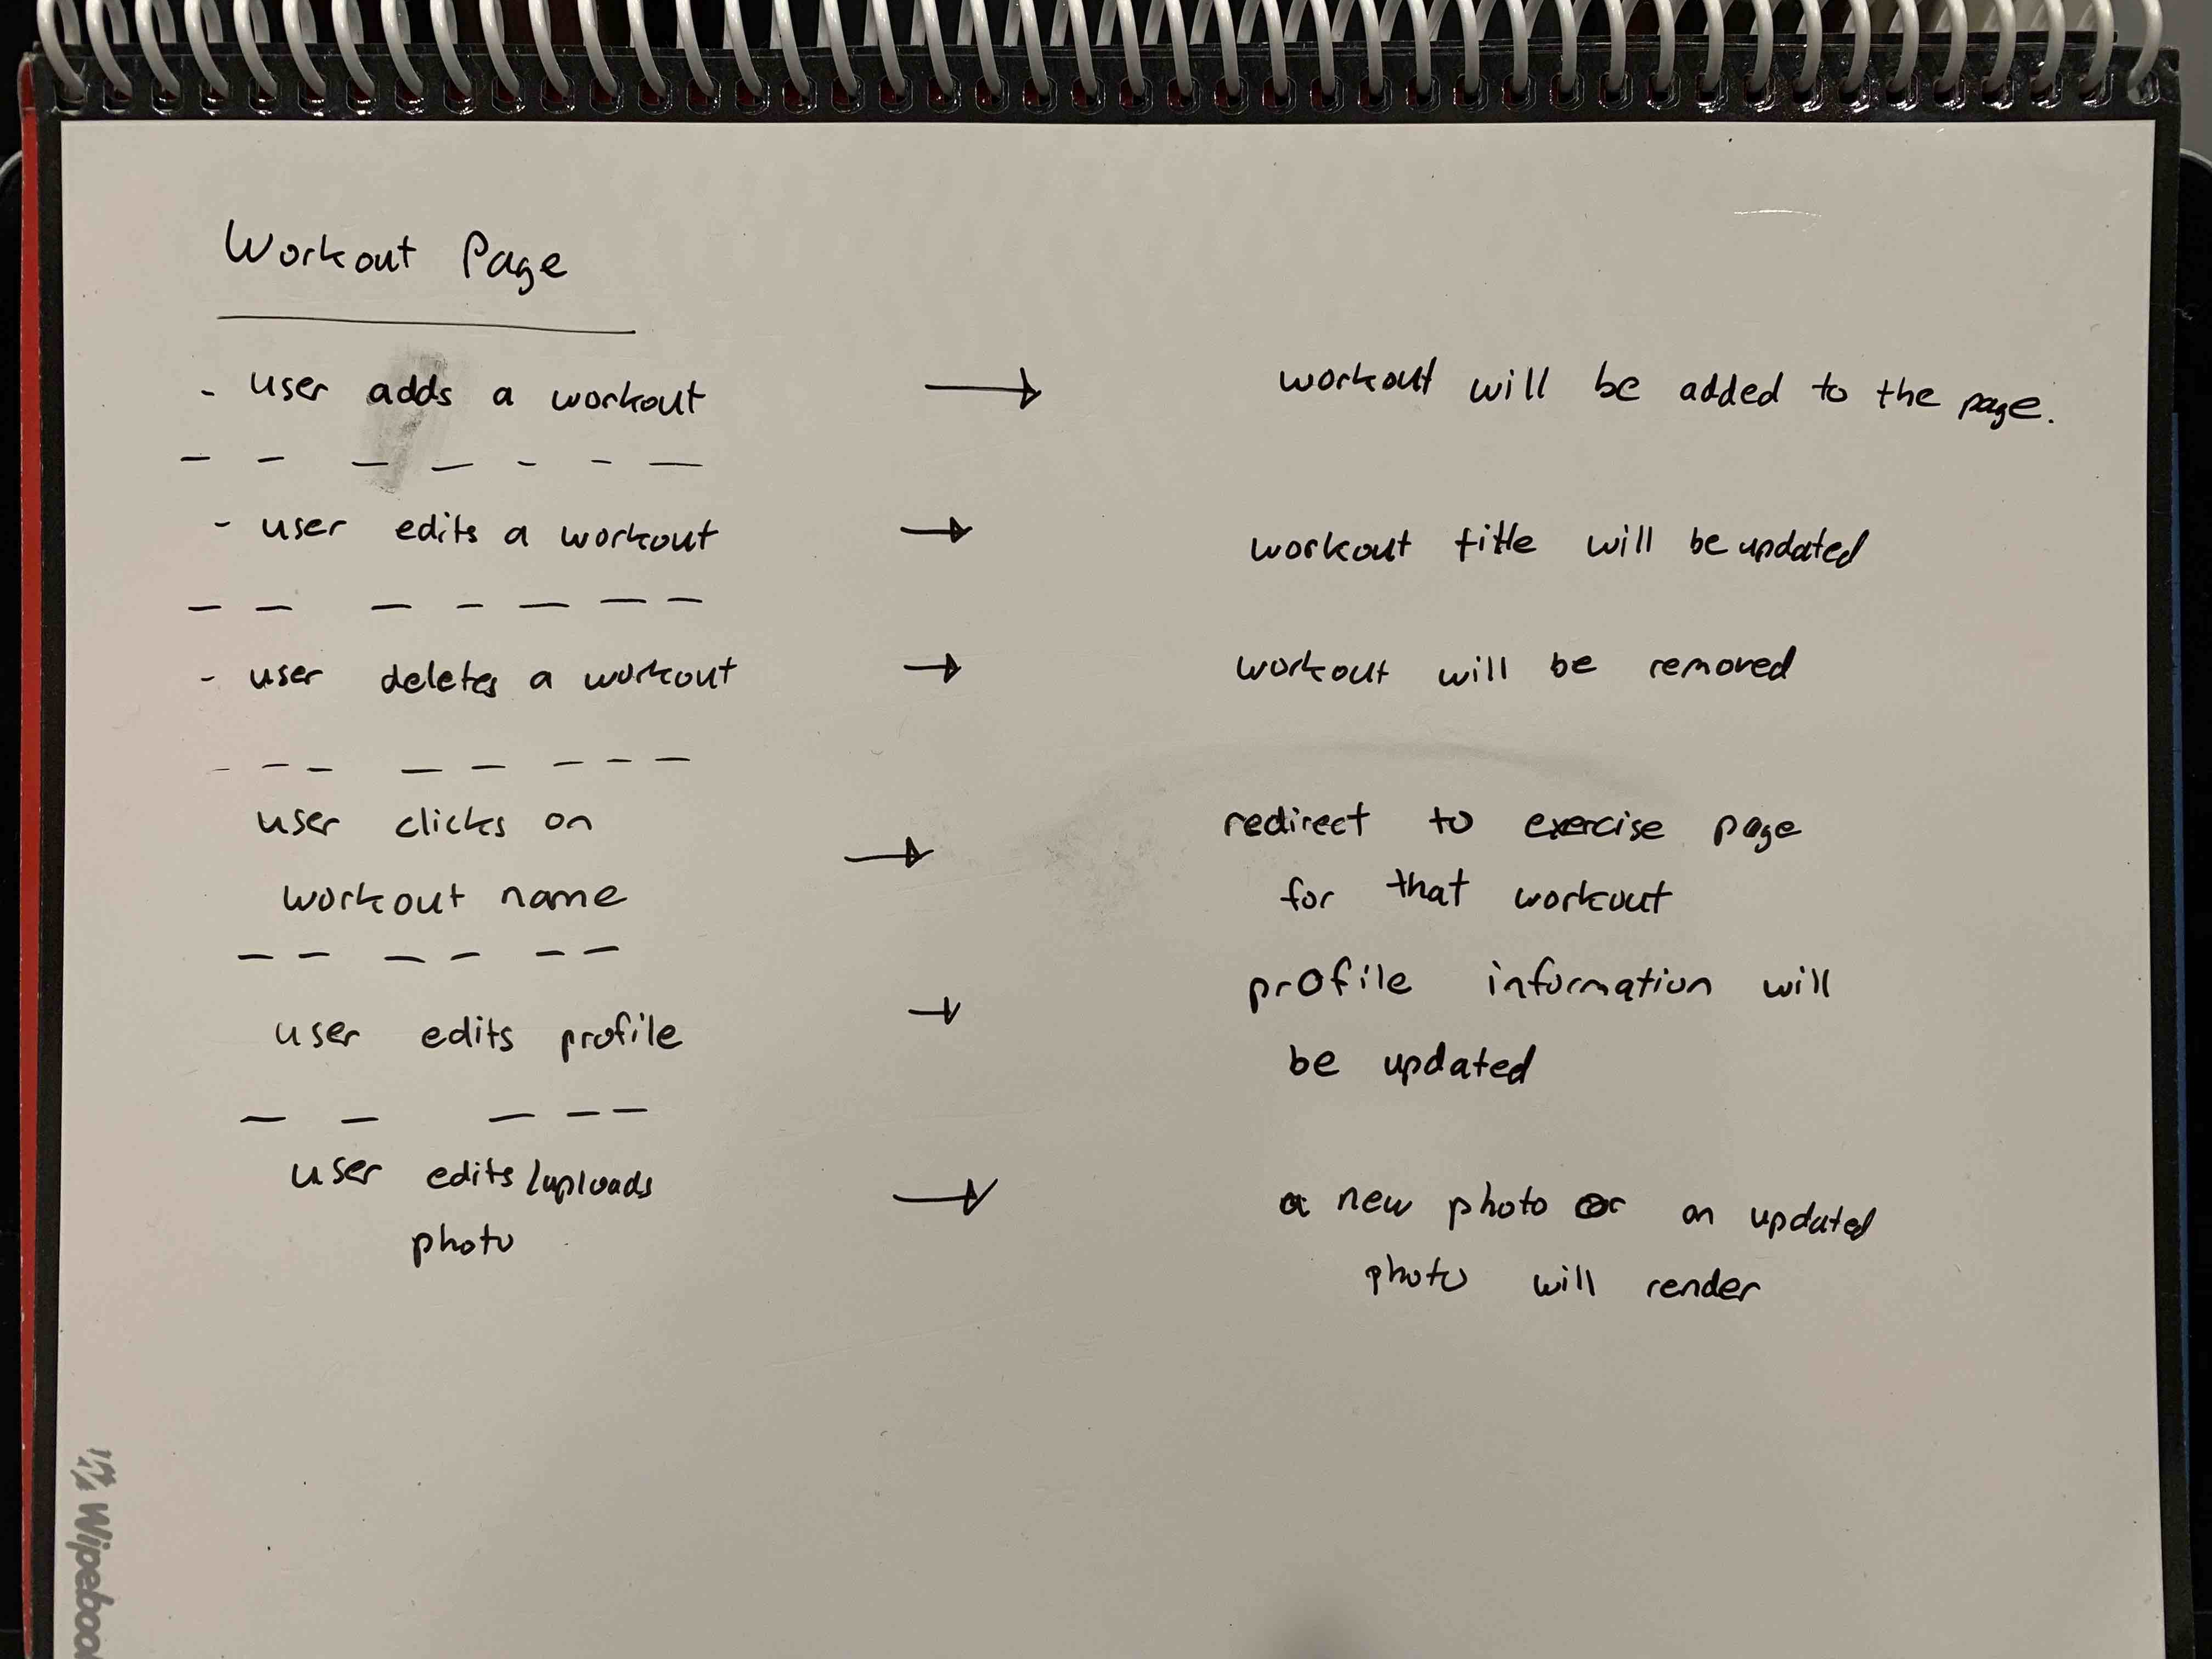 Workout Page
- user adds a workout → workout will be added to the page.
- user edits a workout → workout title will be updated
- user deletes a workout → workout will be removed
user clicks on
workout name
→ redirect to exercise page
for that workout
user edits profile
→ profile information will
be updated
user edits/uploads
photo
→ a new photo or an updated
photo will render
Wipeboo